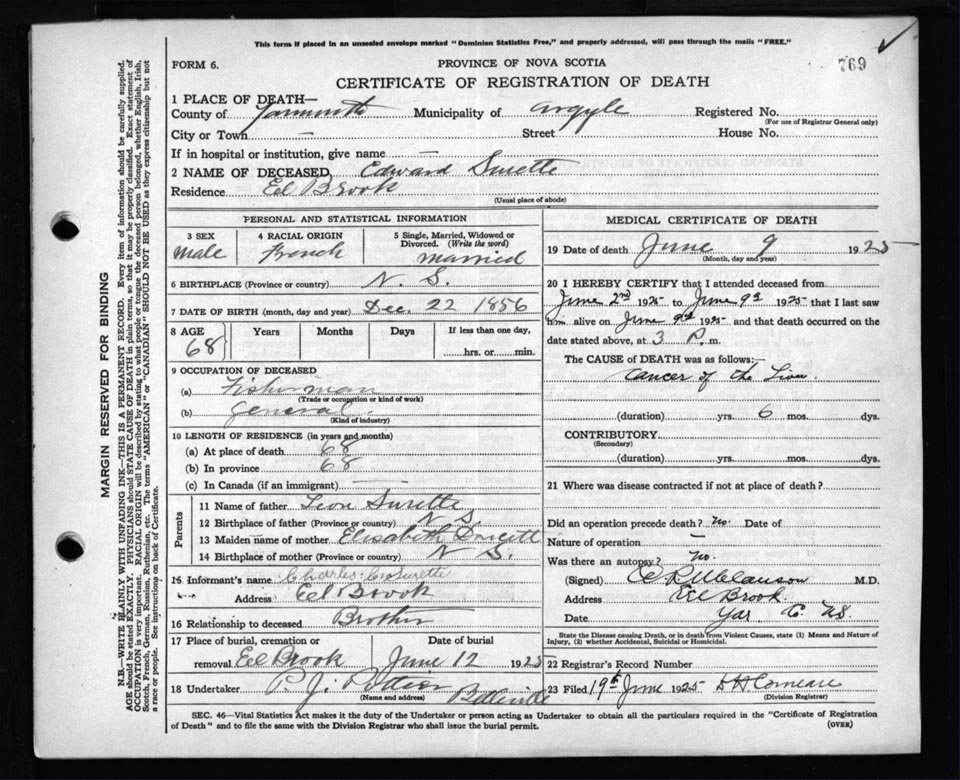 This form if placed in an unsealed envelope marked "Dominion Statistics Free," and properly addressed, will pass through the mails "FREE."
FORM 6.
PROVINCE OF NOVA SCOTIA
769
CERTIFICATE OF REGISTRATION OF DEATH
1 PLACE OF DEATH—
County of Yarmouth Municipality of Argyle Registered No.
(For use of Registrar General only)
City or Town — Street House No.
If in hospital or institution, give name —
2 NAME OF DECEASED Edward Surette
Residence Eel Brook
(Usual place of abode)
PERSONAL AND STATISTICAL INFORMATION
3 SEX
male
4 RACIAL ORIGIN
French
5 Single, Married, Widowed or
Divorced. (Write the word)
married
6 BIRTHPLACE (Province or country) N. S.
7 DATE OF BIRTH (month, day and year) Dec. 22 1856
8 AGE Years Months Days If less than one day,
68 hrs. or min.
9 OCCUPATION OF DECEASED
(a) Fisherman
(Trade or occupation or kind of work)
(b) General
(Kind of industry)
10 LENGTH OF RESIDENCE (in years and months)
(a) At place of death 68
(b) In province 68
(c) In Canada (if an immigrant) —
Parents
11 Name of father Leon Surette
12 Birthplace of father (Province or country) N S
13 Maiden name of mother Elisabeth
14 Birthplace of mother (Province or country) N S.
15 Informant's name Charles Surette
Address Eel Brook
16 Relationship to deceased Brother
17 Place of burial, cremation or Date of burial
removal Eel Brook June 12 1925
18 Undertaker P. J. Pottier Belleville
(Name and address)
MEDICAL CERTIFICATE OF DEATH
19 Date of death June 9 1925
(Month, day and year)
20 I HEREBY CERTIFY that I attended deceased from
June 2nd 1925 to June 9th 1925 that I last saw
him alive on June 9th 1925 and that death occurred on the
date stated above, at 3 P. m.
The CAUSE OF DEATH was as follows:—
Cancer of the Liver
(duration) yrs. 6 mos. dys.
CONTRIBUTORY
(Secondary)
(duration) yrs. mos. dys.
21 Where was disease contracted if not at place of death?
Did an operation precede death? no. Date of
Nature of operation —
Was there an autopsy? no.
(Signed) M.D.
Address Eel Brook
Date Yar. Co. NS.
State the Disease causing Death, or in death from Violent Causes, state (1) Means and Nature of
Injury, (2) whether Accidental, Suicidal or Homicidal.
22 Registrar's Record Number
23 Filed 19th June 1925 Comeau
(Division Registrar)
SEC. 46—Vital Statistics Act makes it the duty of the Undertaker or person acting as Undertaker to obtain all the particulars required in the "Certificate of Registration
of Death" and to file the same with the Division Registrar who shall issue the burial permit.
(OVER)
MARGIN RESERVED FOR BINDING
N.B.—WRITE PLAINLY WITH UNFADING INK—THIS IS A PERMANENT RECORD. Every item of information should be carefully supplied.
AGE should be stated EXACTLY. PHYSICIANS should STATE CAUSE OF DEATH in plain terms, so that it may be properly classified. Exact statement of
OCCUPATION is very important. RACIAL ORIGIN will be described by stating to what people or tongue the deceased person belonged, whether English, Irish,
Scotch, French, German, Russian, Ruthenian, etc. The terms "AMERICAN" or "CANADIAN" SHOULD NOT BE USED as they express citizenship but not
a race or people. See instructions on back of Certificate.